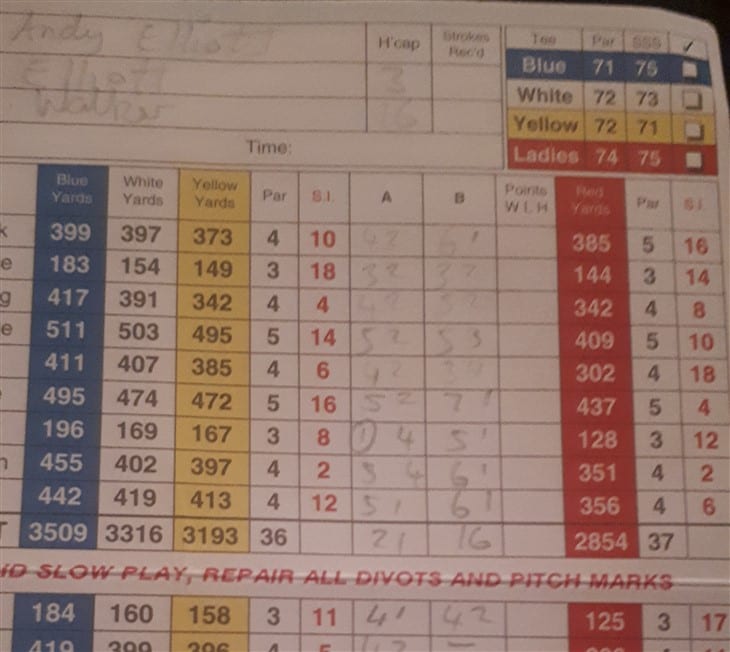 Andy Elliott H'cap Strokes Rec'd Tee Par SSS ✓
Elliott 3 Blue 71 75
Walker 16 White 72 73
Yellow 72 71
Time: Ladies 74 75
Blue Yards White Yards Yellow Yards Par S.I. A B Points W L H Red Yards Par S.I.
k 399 397 373 4 10 4 2 6 1 385 5 16
e 183 154 149 3 18 3 2 3 2 144 3 14
g 417 391 342 4 4 4 2 5 2 342 4 8
e 511 503 495 5 14 5 2 5 3 409 5 10
411 407 385 4 6 4 2 302 4 18
495 474 472 5 16 5 2 7 1 437 5 4
196 169 167 3 8 1 4 5 1 128 3 12
n 455 402 397 4 2 3 4 6 1 351 4 2
442 419 413 4 12 5 1 6 1 356 4 6
T 3509 3316 3193 36 21 16 2854 37
ID SLOW PLAY, REPAIR ALL DIVOTS AND PITCH MARKS
184 160 158 3 11 4 1 4 2 125 3 17
419 399 396 4